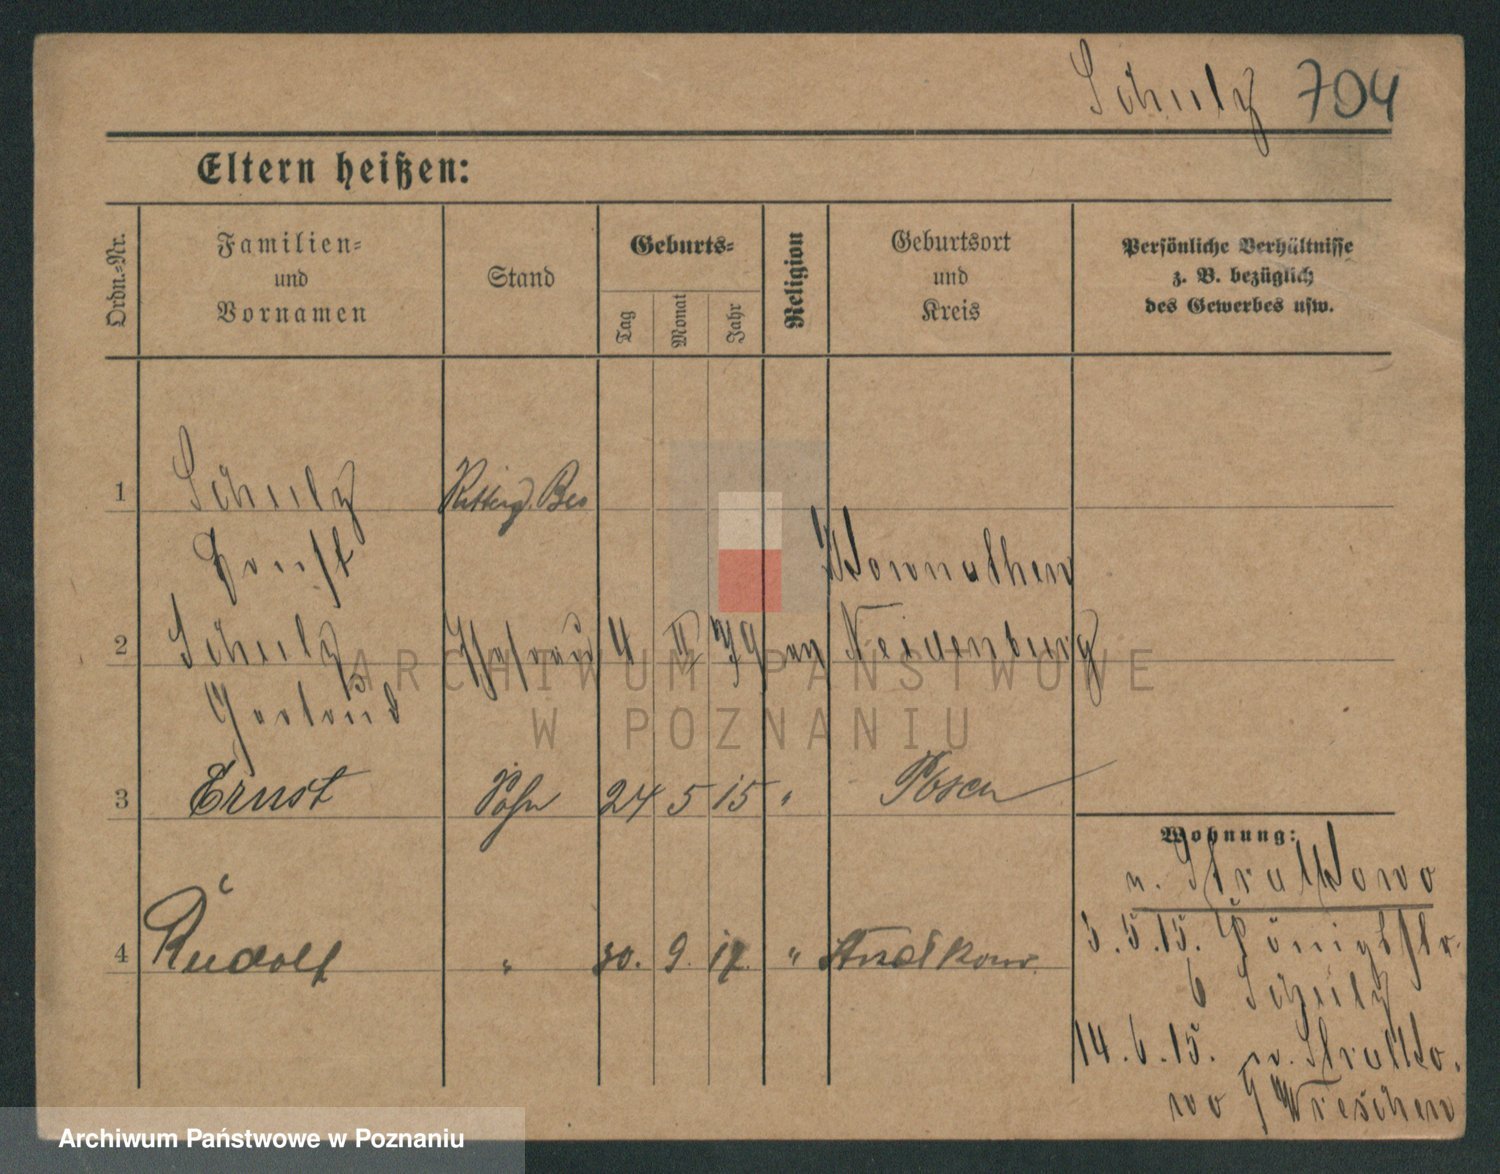 Schulz 704
Eltern heißen:
Ordn.-Nr.
Familien-
und
Vornamen
Stand
Geburts-
Tag
Monat
Jahr
Religion
Geburtsort
und
Kreis
Persönliche Verhältnisse
z. B. bezüglich
des Gewerbes usw.
1 Schulz Ritterg. Bes
Ernst
2 Schulz Ehefrau 4 II 79 ev Neidenburg
Gertrud
3 Ernst Sohn 24 5 15 " Posen
Wohnung:
n.
4 Rudolf " 30. 9. "
3.5.15. Königsstr.
6 Schulz
14.6.15. n.
Wreschen
ARCHIWUM PAŃSTWOWE
W POZNANIU
Archiwum Państwowe w Poznaniu